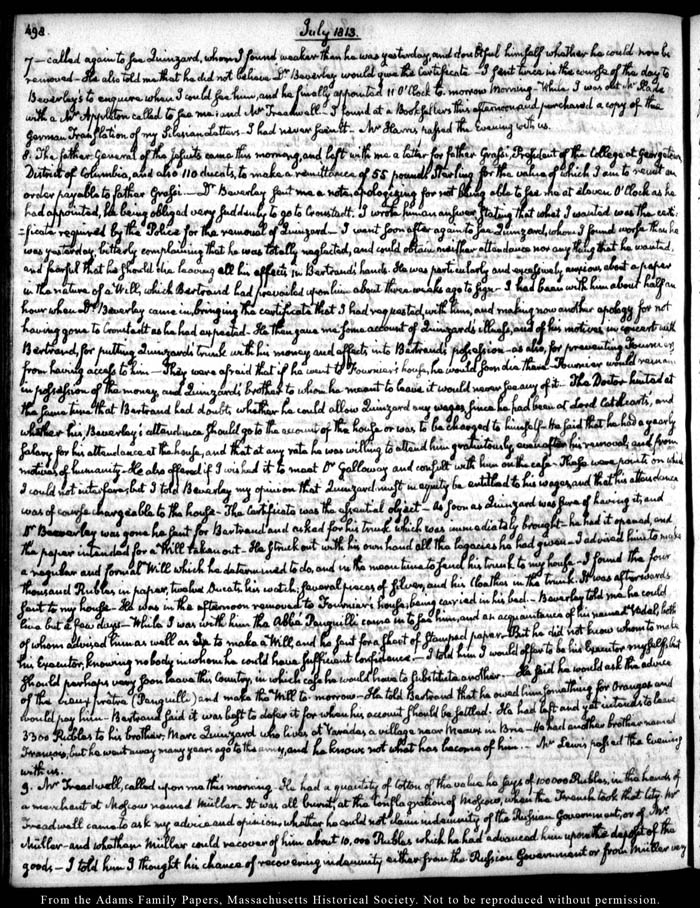 498.
July 1813.
7 — called again to see Quinzard, whom I found weaker than he was yesterday, and doubtful himself whether he could now be
removed — He also told me that he did not believe Dr. Beverley would give the Certificate — I sent twice in the course of the day to
Beverley's to enquire when I could see him, and he finally appointed 11 O'Clock to-morrow Morning — While I was out Mr. Slade
with a Mr. Appleton called to see me: and Mr. Treadwell — I found at a Booksellers this afternoon and purchased a copy of the
German Translation of my Silesian Letters — I had never seen it — Mr. Harris passed the Evening with us.
8. The father General of the Jesuits came this morning, and left with me a letter for father Grassi, President of the College at Georgetown,
District of Columbia, and also 110 ducats, to make a remittance of 55 pounds Sterling for the value of which I am to send an
order payable to father Grassi — Dr. Beverley sent me a note, apologizing for not being able to see me at eleven O'Clock as he
had appointed, he being obliged very suddenly to go to Cronstadt. I wrote him an answer, stating that what I wanted was the certi-
=ficate required by the Police for the removal of Quinzard — I went soon after again to see Quinzard, whom I found worse than he
was yesterday, bitterly complaining that he was totally neglected, and could obtain neither attendance nor any thing that he wanted,
and fearful that he should die leaving all his effects in Bertrand's hands. He was particularly and excessively anxious about a paper
in the nature of a Will, which Bertrand had prevailed upon him about three weeks ago to sign — I had been with him about half an
hour when Dr. Beverley came in, bringing the certificate that I had requested with him, and making now another apology for not
having gone to Cronstadt as he had expected — He then gave me some account of Quinzard's illness, and of his motives, in concert with
Bertrand, for putting Quinzard's trunk with his money and effects into Bertrand's possession — as also, for preventing Fournier,
from having access to him — They were afraid that if he went to Fournier's house, he would soon die there — Fournier would remain
in possession of the money, and Quinzard's brother to whom he meant to leave it would never see any of it — The Doctor hinted at
the same time that Bertrand had doubts whether he could allow Quinzard any wages since he had been at Lord Cathcart's, and
whether his Beverley's attendance should go to the account of the house or was to be charged to himself — He said that he had a yearly
salary for his attendance at the house, and that at any rate he was willing to attend him gratuitously even after his removal, and from
motives of humanity — He also offered if I wished it to meet Dr. Galloway and consult with him on the case — These were points on which
I could not interfere; but I told Beverley my opinion that Quinzard must in equity be entitled to his wages, and that his attendance
was of course chargeable to the house — The Certificate was the essential object — As soon as Quinzard was sure of having it, and
Dr. Beverley was gone he sent for Bertrand and asked for his trunk which was immediately brought — he had it opened, and
the paper intended for a Will taken out — He struck out with his own hand all the legacies he had given — I advised him to make
a regular and formal Will which he determined to do, and in the mean time to send his trunk to my house — I found the four
thousand Rubles in paper, twelve Ducats his watch, several pieces of Silver, and his Cloathes in the trunk. It was afterwards
sent to my house — He was in the afternoon removed to Fournier's house, being carried in his bed — Beverley told me he could
live but a few days — While I was with him the Abbé Panguilli came in to see him, and an acquaintance of his named Vedel, both
of whom advised him as well as I to make a Will, and he sent for a sheet of Stamped paper — But he did not know whom to make
his Executor, knowing nobody in whom he could have sufficient confidence — I told him I would offer to be his Executor myself; but
should perhaps very soon leave this Country, in which case he would have to substitute another — He said he would ask the advice
of the (Panguilli) and make the Will to-morrow — He told Bertrand that he owed him something for Oranges and
would pay him — Bertrand said it was best to defer it for when his account should be settled. He had left and yet intends to leave
3300 Rubles to his brother, Marc Quinzard who lives at Varades a village near Meaux in Brie — He had another brother named
François, but he went away many years ago to the army, and he knows not what has become of him — Mr. Lewis passed the Evening
with us.
9. Mr. Treadwell, called upon me this morning. He had a quantity of Cotton of the value he says of 100000 Rubles, in the hands of
a merchant at Moscow named Müller. It was all burnt, at the Conflagration of Moscow, when the French took that City. Mr.
Treadwell came to ask my advice and opinion, whether he could not claim indemnity of the Russian Government, or of Mr.
Müller — and whether Müller could recover of him about 10,000 Rubles which he had advanced him upon the deposit of the
goods — I told him I thought his chance of recovering indemnity either from the Russian Government or from Müller very
From the Adams Family Papers, Massachusetts Historical Society. Not to be reproduced without permission.